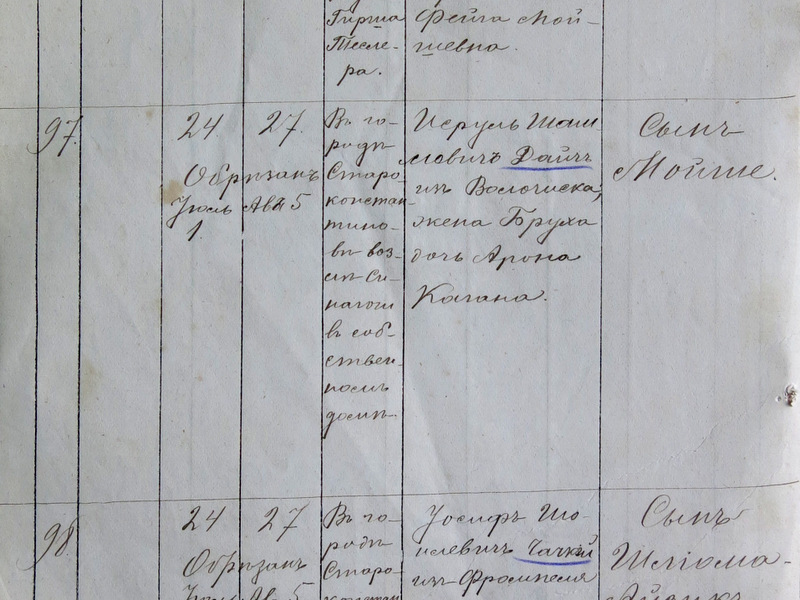 Гирша
Тесле-
ра.
Фейга Мой-
шевна.
97.
24
27.
Обрѣзанъ
Іюль Авъ 5
1.
Въ го-
родѣ
Старо
констан-
тино-
вѣ воз-
лѣ Си-
нагоги
въ соб-
ствен-
номъ
домѣ
Исруль Шае
мовичъ Дайчъ
изъ Волочиска,
жена Бруха
дочь Арона
Кагана.
Сынъ
Мойше.
98.
24
27
Обрѣзанъ
Іюль Ав 5
Въ го-
родѣ
Старо-
констан
Іосифъ Шо-
илевичъ Чачкій
изъ Фрампеля
Сынъ
Шліома-
Айзикъ